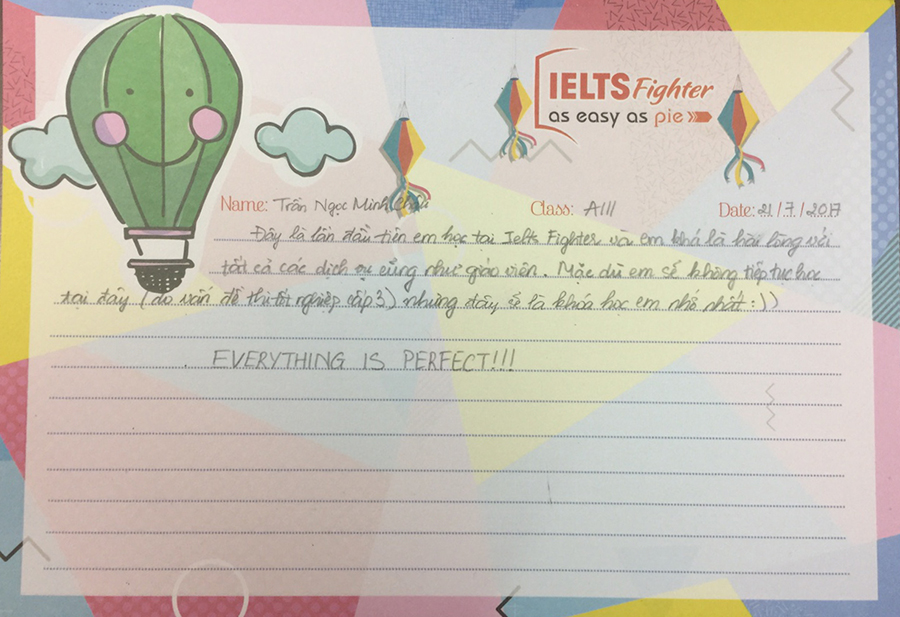 IELTS Fighter
as easy as pie
Name: Trần Ngọc Minh Châu Class: A111 Date: 21/7/2017
Đây là lần đầu tiên em học tại Ielts Fighter và em khá là hài lòng với
tất cả các dịch vụ cũng như giáo viên. Mặc dù em sẽ không tiếp tục học
tại đây (do vấn đề thi tốt nghiệp cấp 3) nhưng đây sẽ là khóa học em nhớ nhất :))
EVERYTHING IS PERFECT!!!